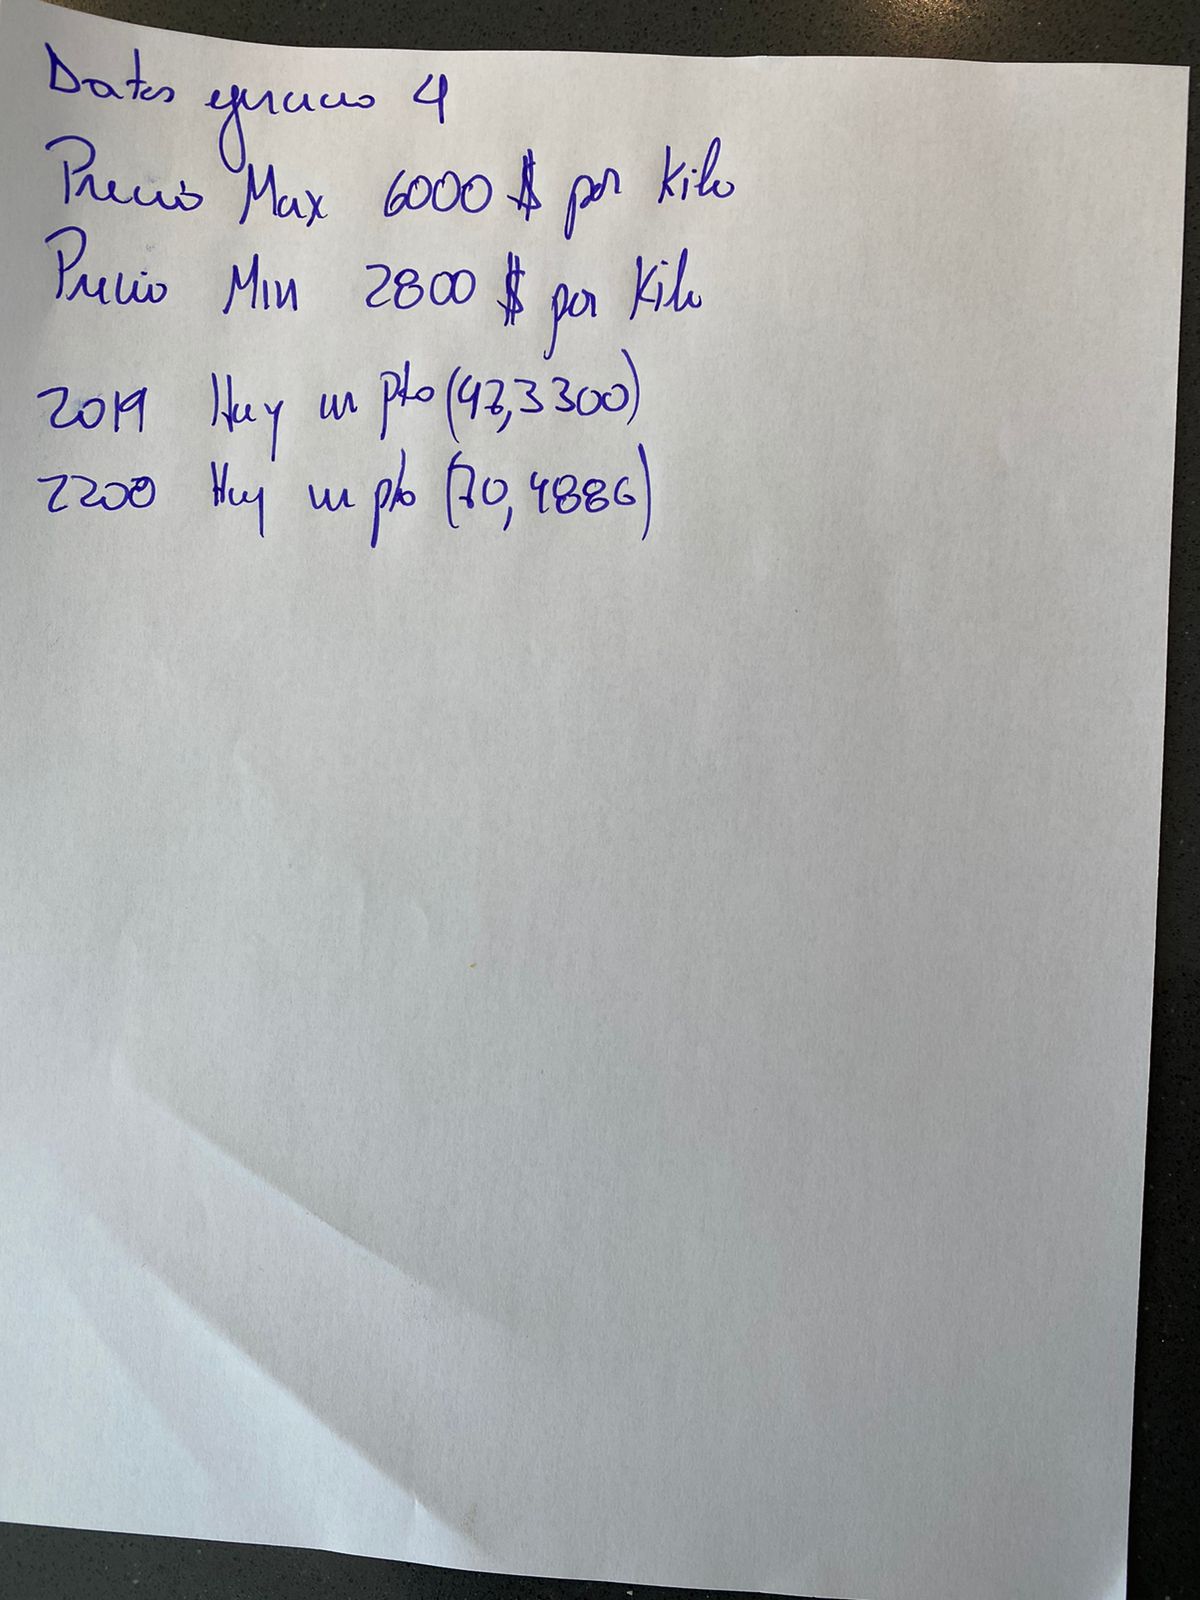 Datos ejercicio 4
Precio Max 6000 $ por Kilo
Precio Min 2800 $ por Kilo
2019 Hay un pto (47,3300)
2200 Hay un pto (70,4886)